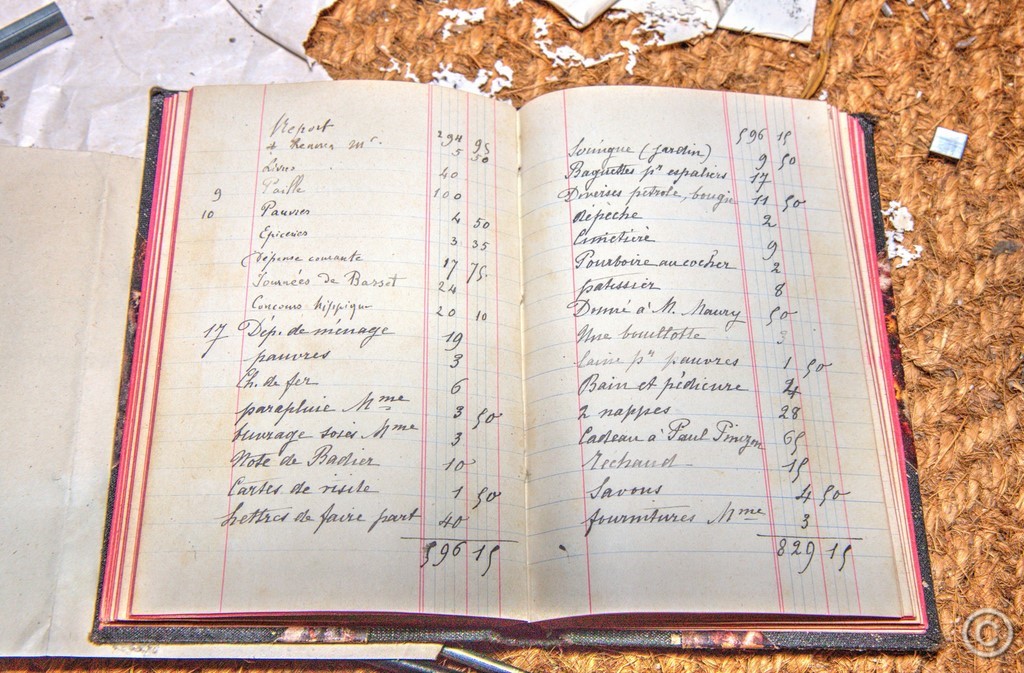 Report 294 95
+ heures mr. 5 50
Livres 40
9 Paille 100
10 Pauvres 4 50
Epiceries 3 35
Dépense courante 17 75
Journées de Basset 24
Concours hippique 20 10
17 Dép. de ménage 19
pauvres 3
Ch. de fer 6
parapluie Mme 3 50
ouvrage soies Mme 3
Note de Badier 10
Cartes de visite 1 50
Lettres de faire part 40
596 15
596 15
(jardin) 9 50
Baguettes pr espaliers 17
Diverses pétrole, bougie 11 50
dépêche 2
Cimetière 9
Pourboire au cocher 2
pâtissier 8
Donné à M. Maury 50
Une bouillotte 3
laine pr pauvres 1 50
Bain et pédicure 4
2 nappes 28
Cadeau à Paul 65
Réchaud 15
Savons 4 50
fournitures Mme 3
829 15
©